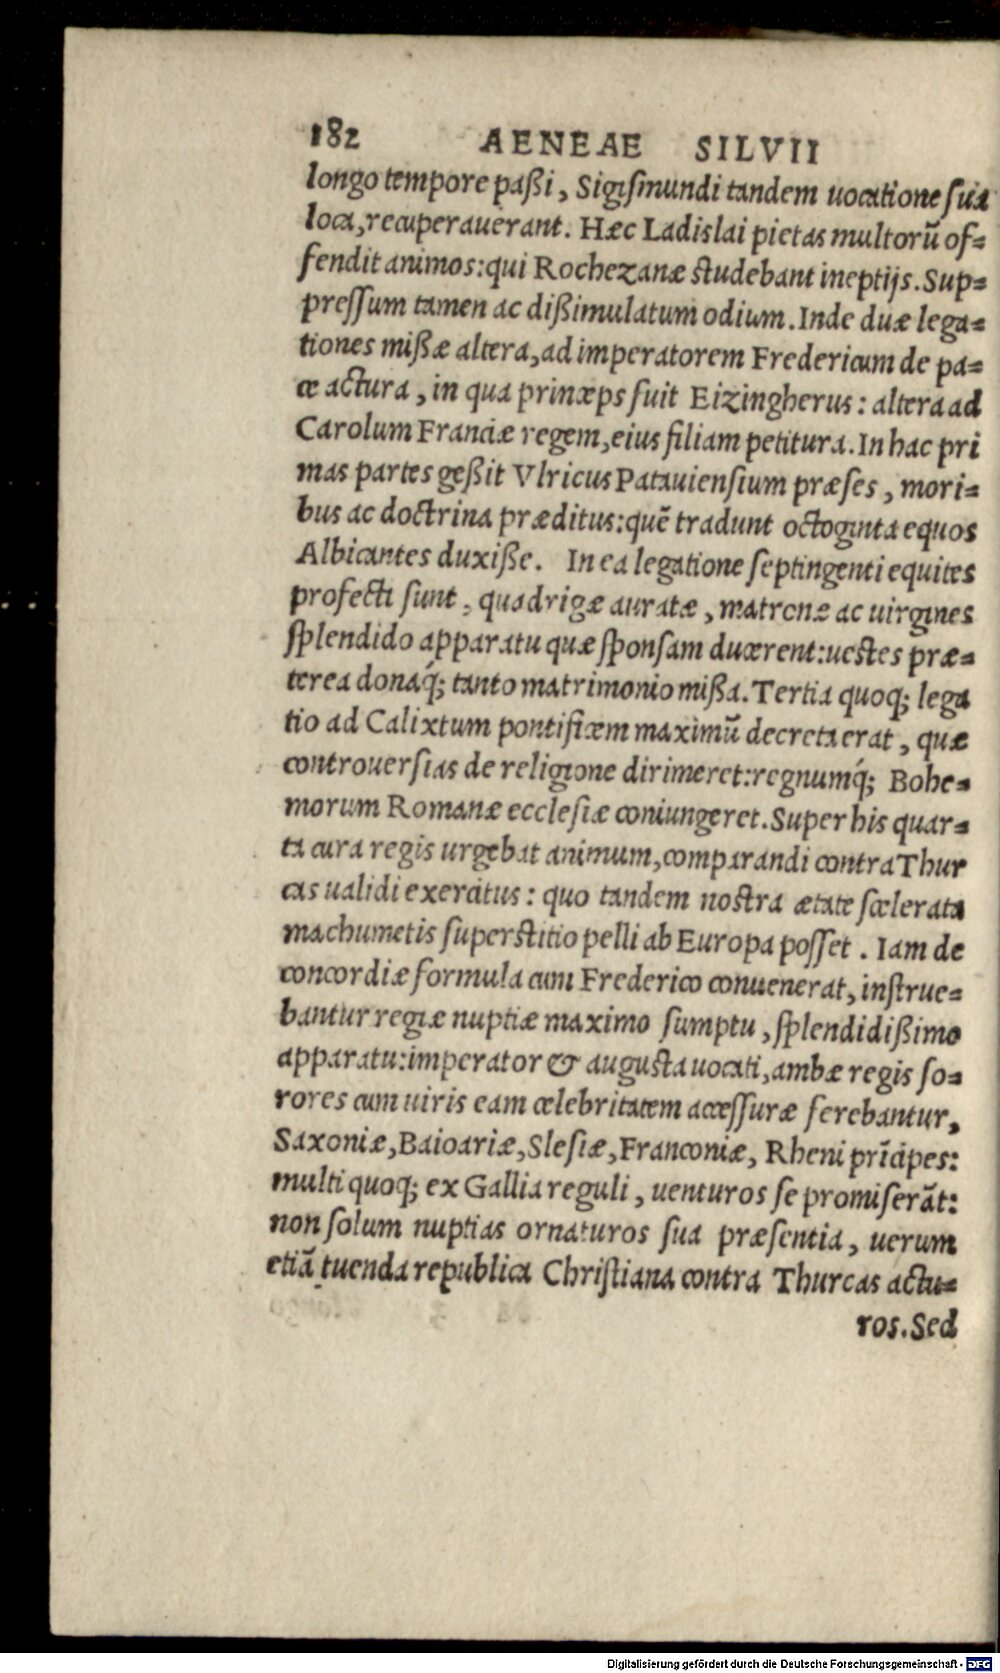 182 AENEAE SILVII
longo tempore paßi, Sigiſmundi tandem uocatione ſua
loca, recuperauerant. Hæc Ladislai pietas multorũ of⸗
fendit animos: qui Rochezanæ ſtudebant ineptijs. Sup⸗
preſſum tamen ac dißimulatum odium. Inde duæ lega⸗
tiones mißæ altera, ad imperatorem Fredericum de pa⸗
ce actura, in qua princeps fuit Eizingherus: altera ad
Carolum Franciæ regem, eius filiam petitura. In hac pri
mas partes geßit Vlricus Patauienſium præſes, mori⸗
bus ac doctrina præditus: quẽ tradunt octoginta equos
Albicantes duxiße. In ea legatione ſeptingenti equites
profecti ſunt, quadrigæ auratæ, matronæ ac uirgines
ſplendido apparatu quæ ſponſam ducerent: ueſtes præ⸗
terea donaq́; tanto matrimonio mißa. Tertia quoq; lega
tio ad Calixtum pontificem maximũ decreta erat, quæ
controuerſias de religione dirimeret: regnumq́; Bohe⸗
morum Romanæ eccleſiæ coniungeret. Super his quar⸗
ta cura regis urgebat animum, comparandi contra Thur
cas ualidi exercitus: quo tandem noſtra ætate ſcelerata
machumetis ſuperſtitio pelli ab Europa poſſet. Iam de
concordiæ formula cum Frederico conuenerat, inſtrue⸗
bantur regiæ nuptiæ maximo ſumptu, ſplendidißimo
apparatu: imperator & auguſta uocati, ambæ regis ſo⸗
rores cum uiris eam celebritatem acceſſuræ ferebantur,
Saxoniæ, Baioariæ, Sleſiæ, Franconiæ, Rheni prĩcipes:
multi quoq; ex Gallia reguli, uenturos ſe promiſerãt:
non ſolum nuptias ornaturos ſua præſentia, uerum
etiã tuenda republica Chriſtiana contra Thurcas actu⸗
ros. Sed
Digitalisierung gefördert durch die Deutsche Forschungsgemeinschaft - DFG